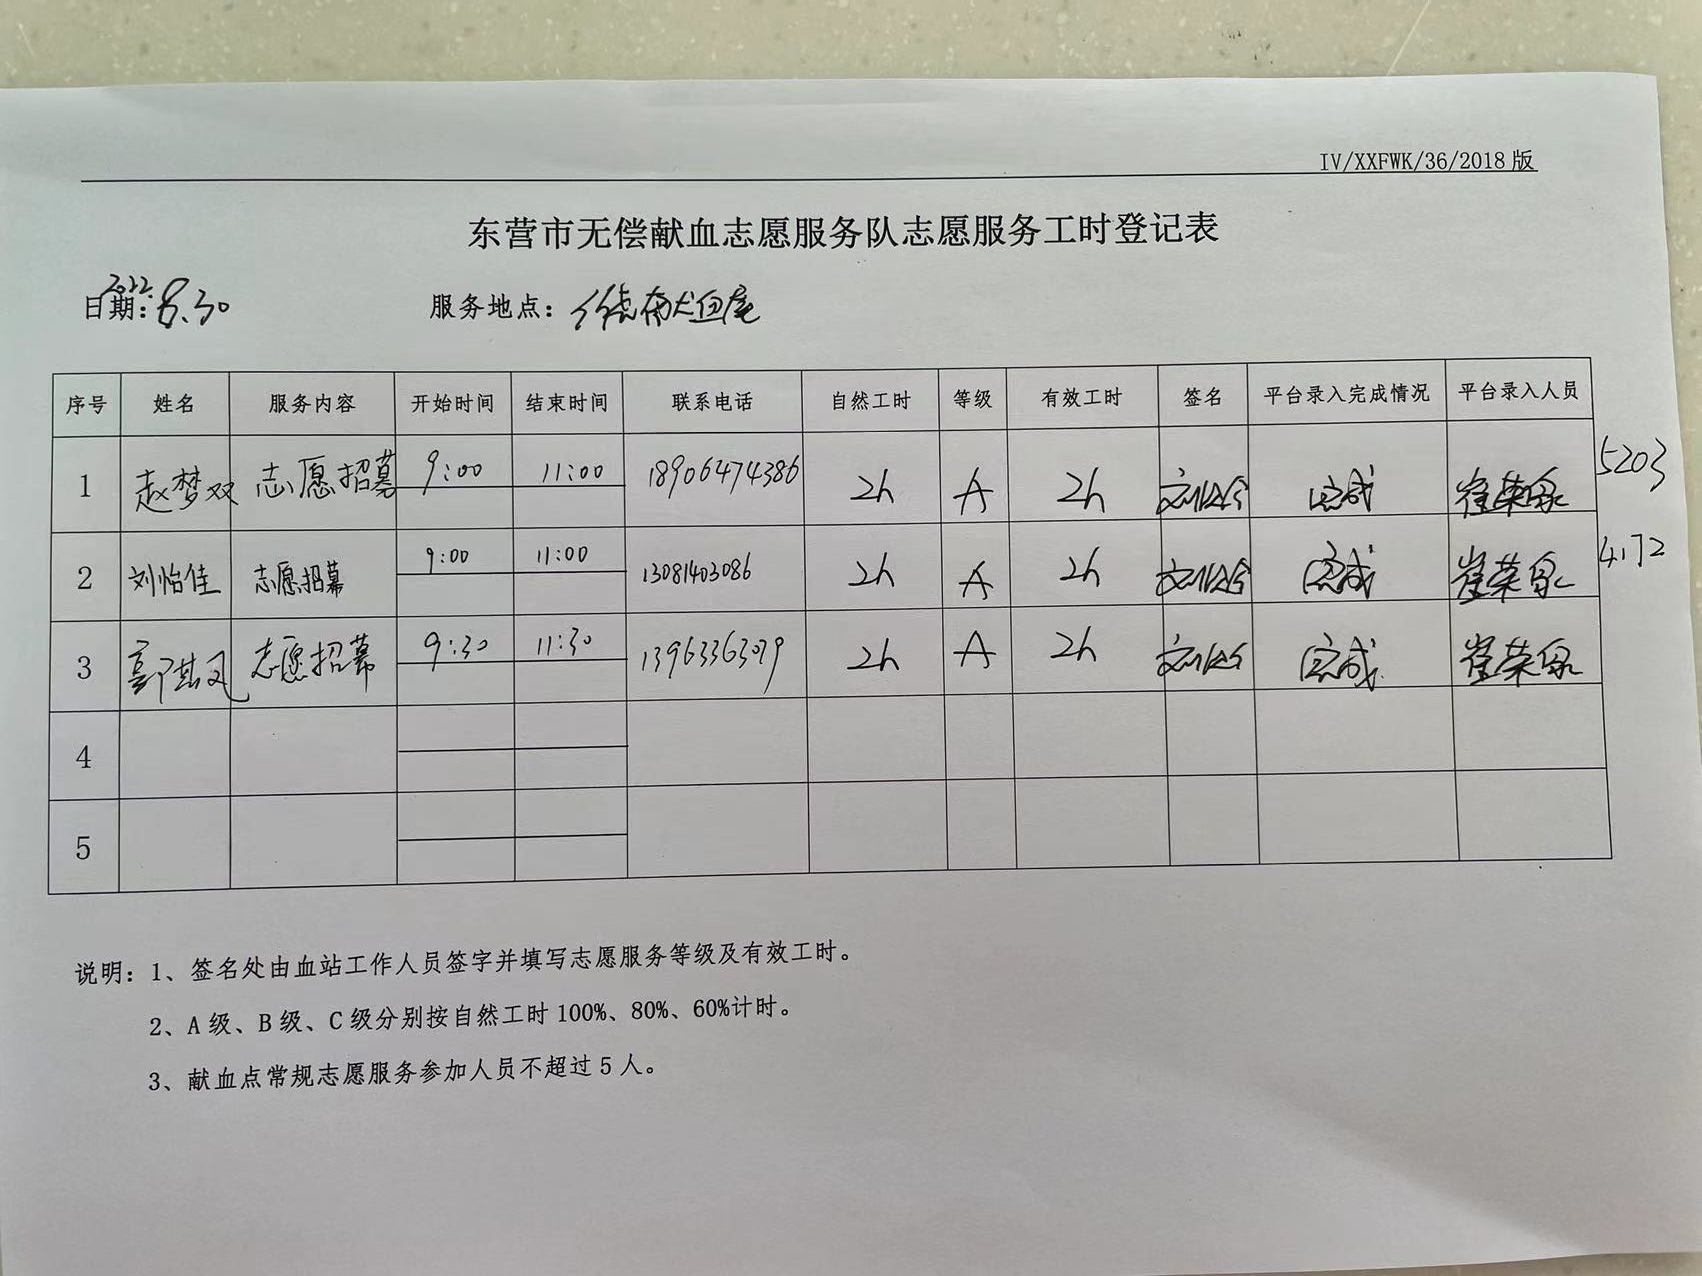 IV/XXFWK/36/2018 版
东营市无偿献血志愿服务队志愿服务工时登记表
日期: 2022.8.30 服务地点: 献血屋
序号 姓名 服务内容 开始时间 结束时间 联系电话 自然工时 等级 有效工时 签名 平台录入完成情况 平台录入人员
1 赵梦双 志愿招募 9:00 11:00 18906474386 2h A 2h 完成 崔荣泉 5203
2 刘怡佳 志愿招募 9:00 11:00 13081403086 2h A 2h 完成 崔荣泉 4172
3 郭其凤 志愿招募 9:30 11:30 13963363079 2h A 2h 完成 崔荣泉
4
5
说明: 1、签名处由血站工作人员签字并填写志愿服务等级及有效工时。
2、A 级、B 级、C 级分别按自然工时 100%、80%、60%计时。
3、献血点常规志愿服务参加人员不超过 5 人。